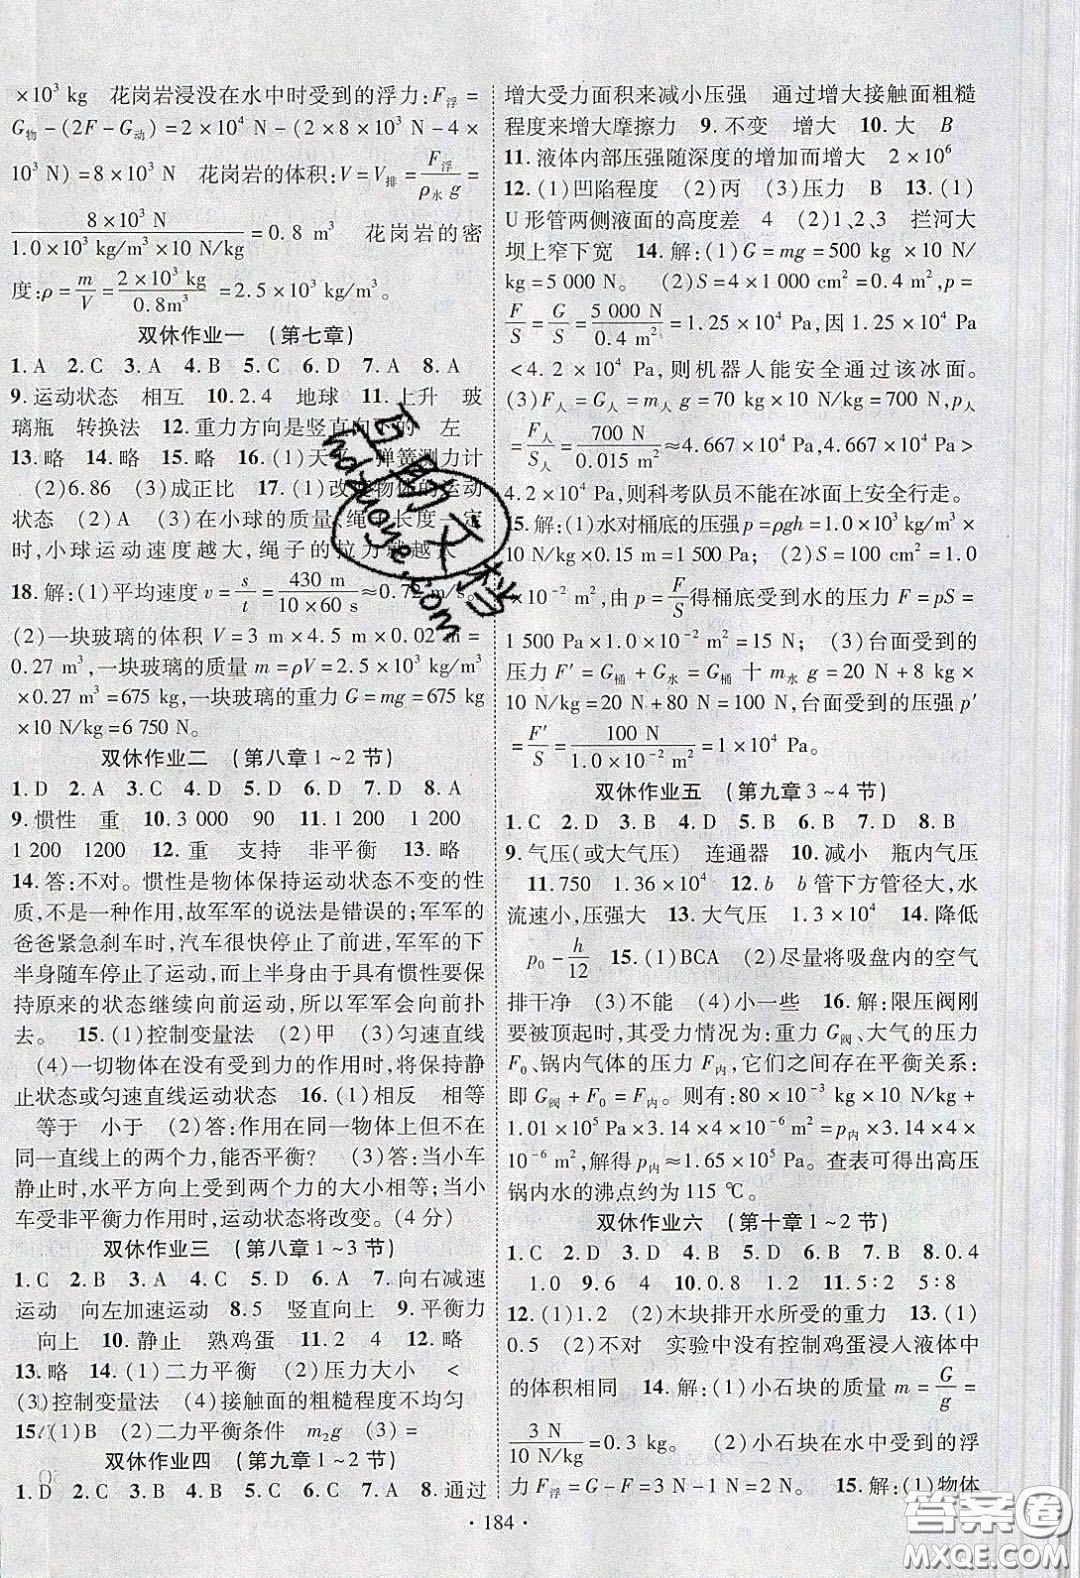 ×10³ kg　花岗岩浸没在水中时受到的浮力:F浮=
G物-(2F-G动)=2×10⁴ N-(2×8×10³ N-4×
10³ N)=8×10³ N　花岗岩的体积:V=V排=F浮/ρ水g=
8×10³ N/1.0×10³ kg/m³×10 N/kg=0.8 m³　花岗岩的密
度:ρ=m/V=2×10³ kg/0.8m³=2.5×10³ kg/m³。
双休作业一　(第七章)
1.A　2.C　3.A　4.B　5.C　6.D　7.A　8.A
9.运动状态　相互　10.2.4　地球　11.上升　玻
璃瓶　转换法　12.重力方向是竖直向下的　左
13.略　14.略　15.略　16.(1)天平　弹簧测力计
(2)6.86　(3)成正比　17.(1)改变物体的运动
状态　(2)A　(3)在小球的质量、绳子长度一定
时,小球运动速度越大,绳子的拉力就越大
18.解:(1)平均速度v=s/t=430 m/10×60 s≈0.72 m/s。
(2)一块玻璃的体积 V=3 m×4.5 m×0.02 m=
0.27 m³,一块玻璃的质量 m=ρV=2.5×10³ kg/m³
×0.27 m³=675 kg,一块玻璃的重力 G=mg=675 kg
×10 N/kg=6 750 N。
双休作业二　(第八章1~2节)
1.D　2.A　3.C　4.D　5.B　6.D　7.A　8.D
9.惯性　重　10.3 000　90　11.1 200　1 200
1 200　1200　12.重　支持　非平衡　13.略
14.答:不对。惯性是物体保持运动状态不变的性
质,不是一种作用,故军军的说法是错误的;军军的
爸爸紧急刹车时,汽车很快停止了前进,军军的下
半身随车停止了运动,而上半身由于具有惯性要保
持原来的状态继续向前运动,所以军军会向前扑
去。　15.(1)控制变量法　(2)甲　(3)匀速直线
(4)一切物体在没有受到力的作用时,将保持静
止状态或匀速直线运动状态　16.(1)相反　相等
等于　小于　(2)答:作用在同一物体上但不在
同一直线上的两个力,能否平衡?　(3)答:当小车
静止时,水平方向上受到两个力的大小相等;当小
车受非平衡力作用时,运动状态将改变。(4分)
双休作业三　(第八章1~3节)
1.C　2.B　3.A　4.D　5.D　6.A　7.向右减速
运动　向左加速运动　8.5　竖直向上　9.平衡力
向上　10.静止　熟鸡蛋　11.2　4　12.略
13.略　14.(1)二力平衡　(2)压力大小　<
(3)控制变量法　(4)接触面的粗糙程度不均匀
15.(1)B　(2)二力平衡条件　m₂g　(3)=
双休作业四　(第九章1~2节)
1.D　2.C　3.B　4.B　5.B　6.A　7.A　8.通过
增大受力面积来减小压强　通过增大接触面粗糙
程度来增大摩擦力　9.不变　增大　10.大　B
11.液体内部压强随深度的增加而增大　2×10⁶
12.(1)凹陷程度　(2)丙　(3)压力　B　13.(1)
U形管两侧液面的高度差　4　(2)1、2、3　拦河大
坝上窄下宽　14.解:(1)G=mg=500 kg×10 N/
kg=5 000 N。　(2)S=4×1 000 cm²=0.4 m²,p=
F/S=G/S=5 000 N/0.4 m²=1.25×10⁴ Pa,因 1.25×10⁴ Pa
<4.2×10⁴ Pa,则机器人能安全通过该冰面。
(3)F人=G人=m人g=70 kg×10 N/kg=700 N,p人
=F人/S人=700 N/0.015 m²≈4.667×10⁴ Pa,4.667×10⁴ Pa>
4.2×10⁴ Pa,则科考队员不能在冰面上安全行走。
15.解:(1)水对桶底的压强p=ρgh=1.0×10³ kg/m³
×10 N/kg×0.15 m=1 500 Pa;　(2)S=100 cm²=1.0
×10⁻² m²,由p=F/S得桶底受到水的压力 F=pS=
1 500 Pa×1.0×10⁻² m²=15 N;　(3)台面受到的
压力 F′=G桶+G水=G桶十m水g=20 N+8 kg
×10 N/kg=20 N+80 N=100 N,台面受到的压强p′
=F′/S=100 N/1.0×10⁻² m²=1×10⁴ Pa。
双休作业五　(第九章3~4节)
1.C　2.D　3.D　4.D　5.B　6.B　7.D　8.B
9.气压(或大气压)　连通器　10.减小　瓶内气压
11.750　1.36×10⁴　12.b　b管下方管径大,水
流速小,压强大　13.大气压　1.3×10⁴　14.降低
p₀-h/12　15.(1)BCA　(2)尽量将吸盘内的空气
排干净　(3)不能　(4)小一些　16.解:限压阀刚
要被顶起时,其受力情况为:重力G阀、大气的压力
F₀、锅内气体的压力F内,它们之间存在平衡关系:
即G阀+F₀=F内。则有:80×10⁻³ kg×10 N/kg+
1.01×10⁵ Pa×3.14×4×10⁻⁶ m²=p内×3.14×4×
10⁻⁶ m²,解得p内≈1.65×10⁵ Pa。查表可得出高压
锅内水的沸点约为115 ℃。
双休作业六　(第十章1~2节)
1.C　2.D　3.D　4.A　5.D　6.B　7.D　8.0.4
1.0　9.6　4　10.0.8　1.2　11.5:2　5:8
12.(1)1.2　(2)木块排开水所受的重力　13.(1)
0.5　(2)不对　实验中没有控制鸡蛋浸入液体中
的体积相同　14.解:(1)小石块的质量 m=G/g=
3 N/10 N/kg=0.3 kg。　(2)小石块在水中受到的浮
力F浮=G-F=3 N-1 N=2 N。　15.解:(1)物体
·184·
hdzuoye.com
答案圈
MXQE.COM